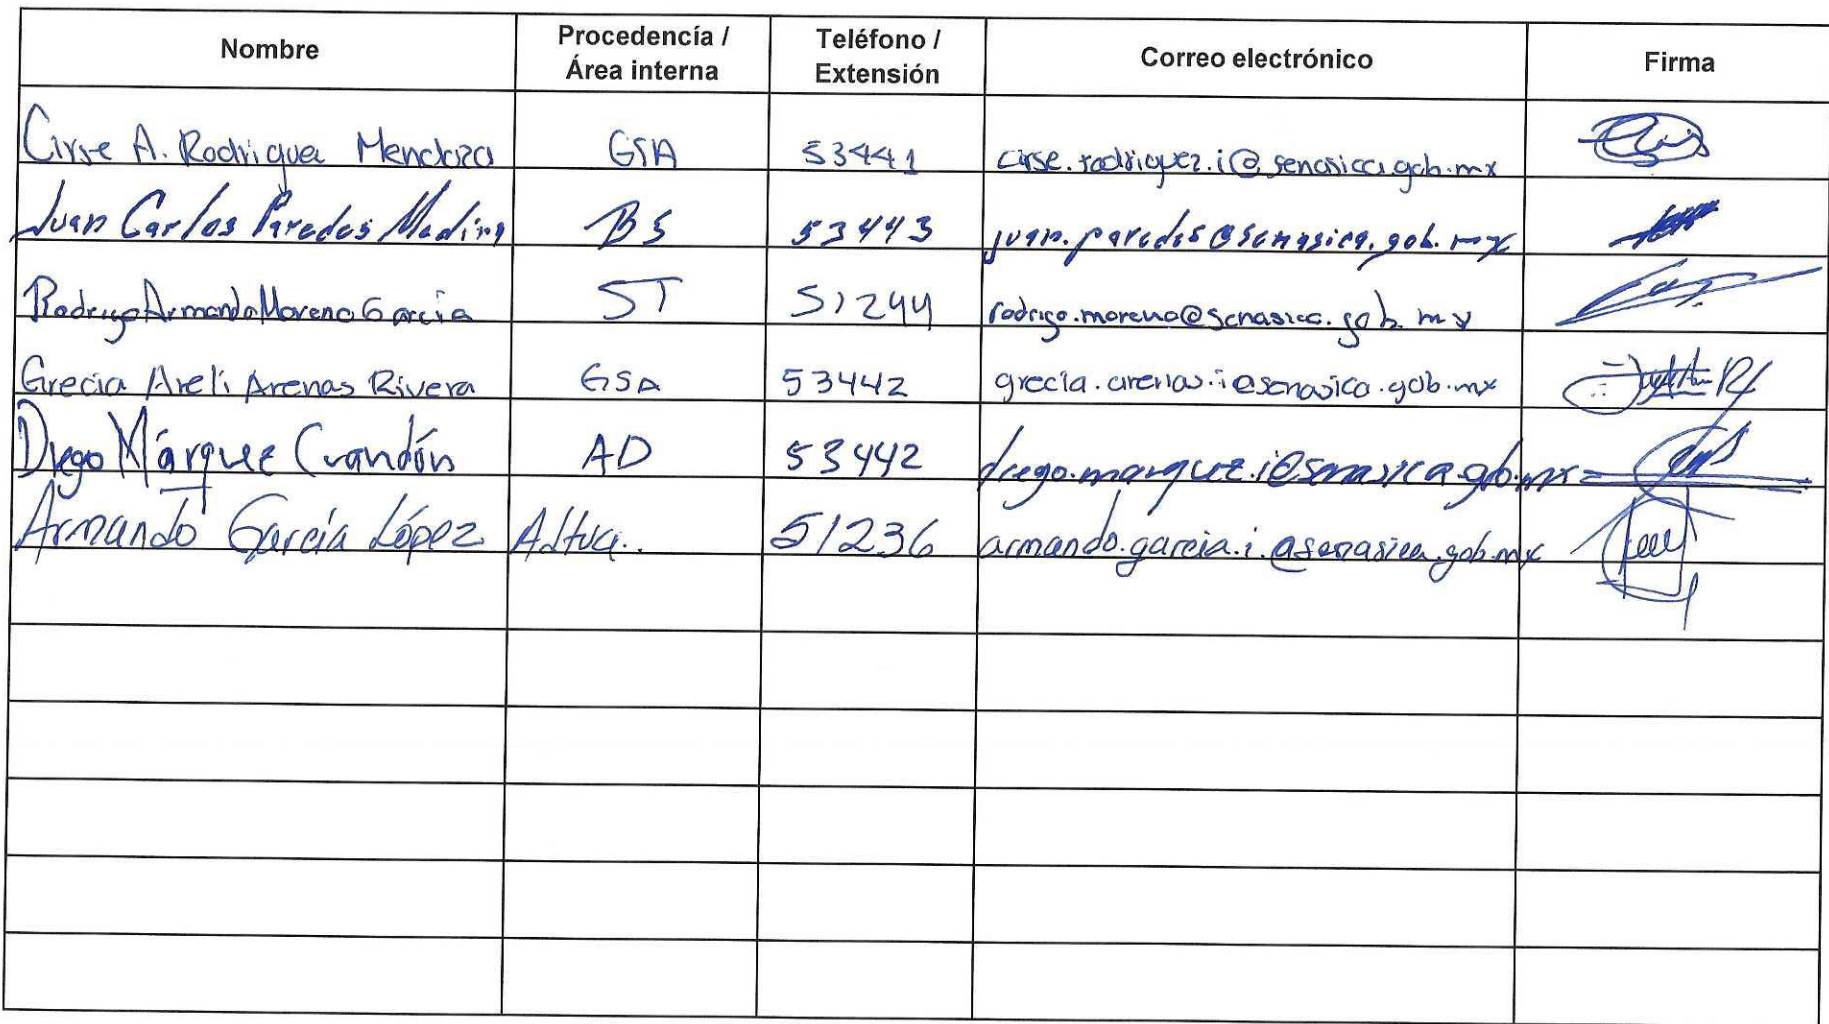 Nombre Procedencía / Área interna Teléfono / Extensión Correo electrónico Firma
Cirse A. Rodriguez Mendoza GSA 53441 cirse.rodriguez.i@senasica.gob.mx
Juan Carlos Paredes Medina BS 53443 juan.paredes@senasica.gob.mx
Rodrigo Armando Moreno Garcia ST 51244 rodrigo.moreno@senasica.gob.mx
Grecia Areli Arenas Rivera GSA 53442 grecia.arenas.i@senasica.gob.mx
Diego Márquez AD 53442 diego.marquez.i@senasica.gob.mx
Armando García López 51236 armando.garcia.i.@senasica.gob.mx